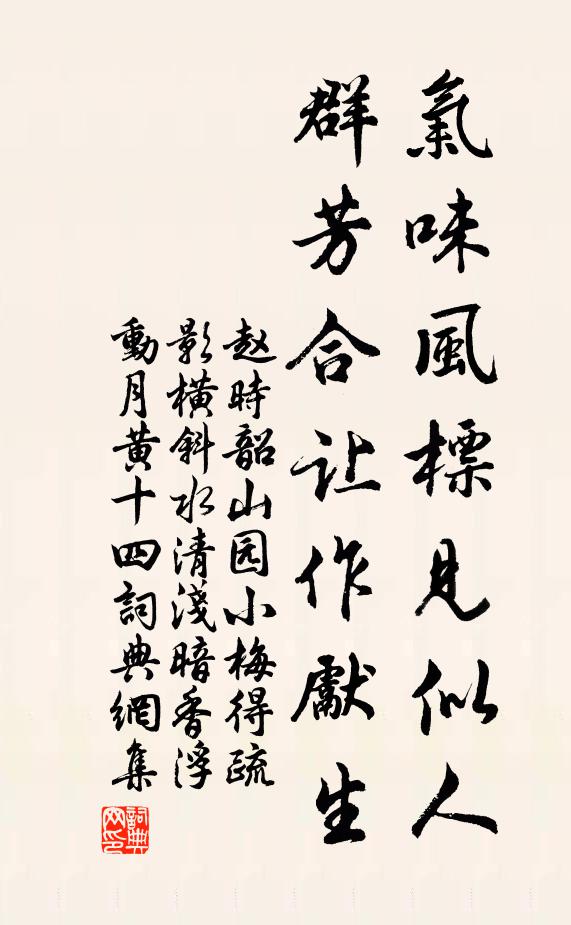 氣味風標見似人
群芳合让作獻生
赵時韶山园小梅得疏
影橫斜水清淺暗香浮
動月黄十四詞典網集
詞典
网印